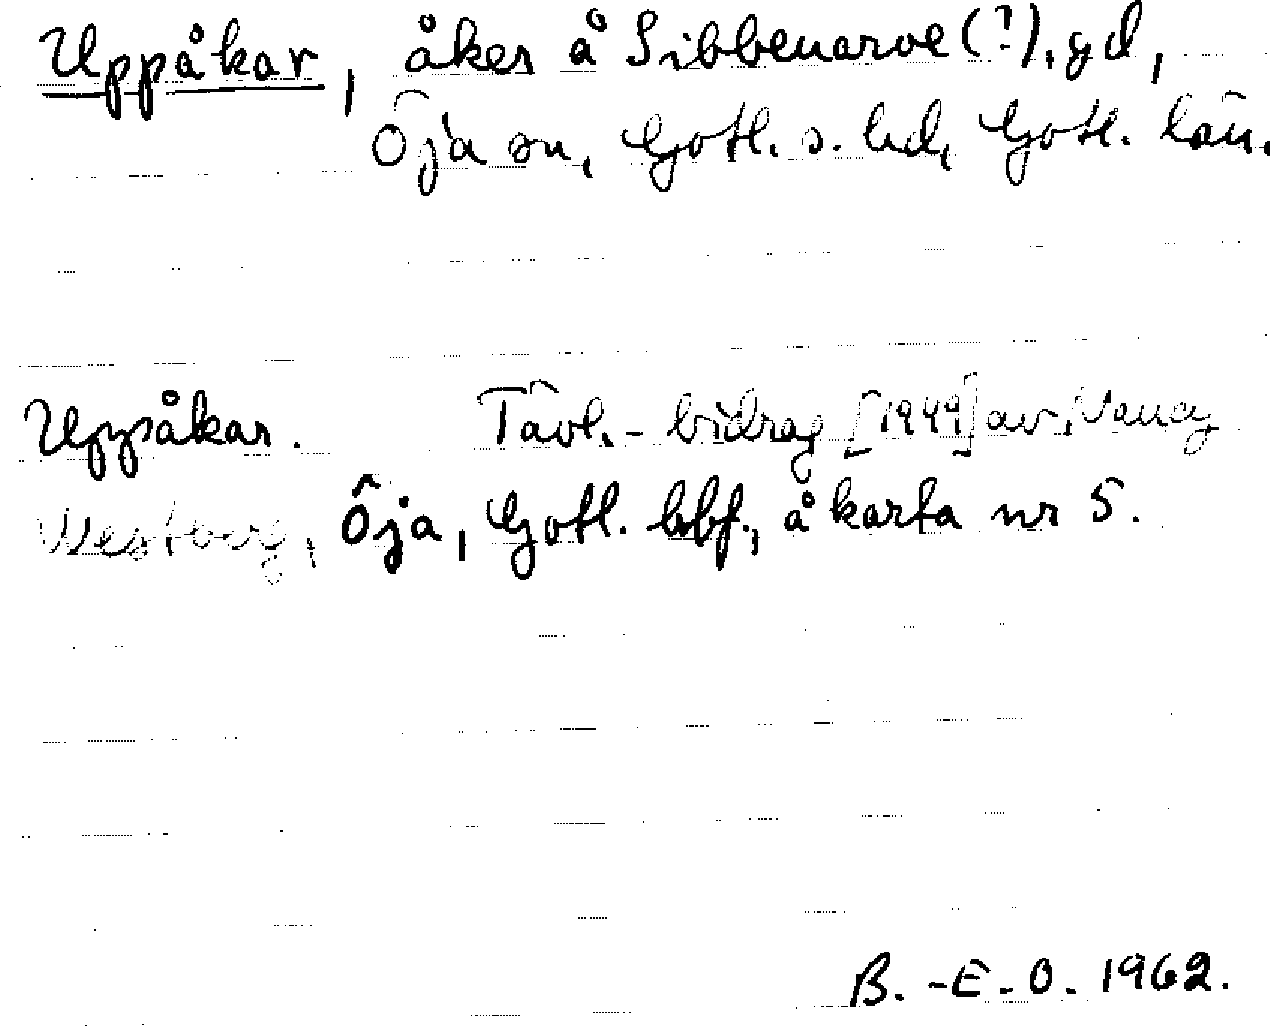 Uppåkar, åker å Sibbenarve(?), gd,
Öja sn, Gotl. s. hd, Gotl. län.
Uppåkar. Tävl.-bidrag [1949] av Nancy
Westberg, Öja, Gotl. hbf., å karta nr 5.
B.-E. O. 1962.